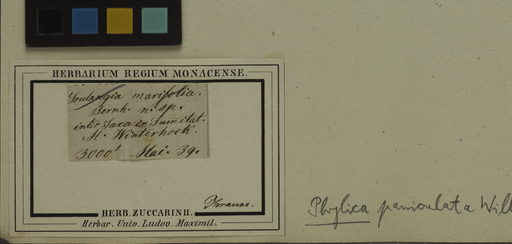 HERBARIUM REGIUM MONACENSE.
Soulangia marifolia.
Bernh. n. sp.
inter Saxa in Sumitat.
M. Winterhoek.
3000' Mai. 39.
Krauss.
HERB. ZUCCARINII.
Herbar. Univ. Ludov. Maximil.
Phylica paniculata Willd